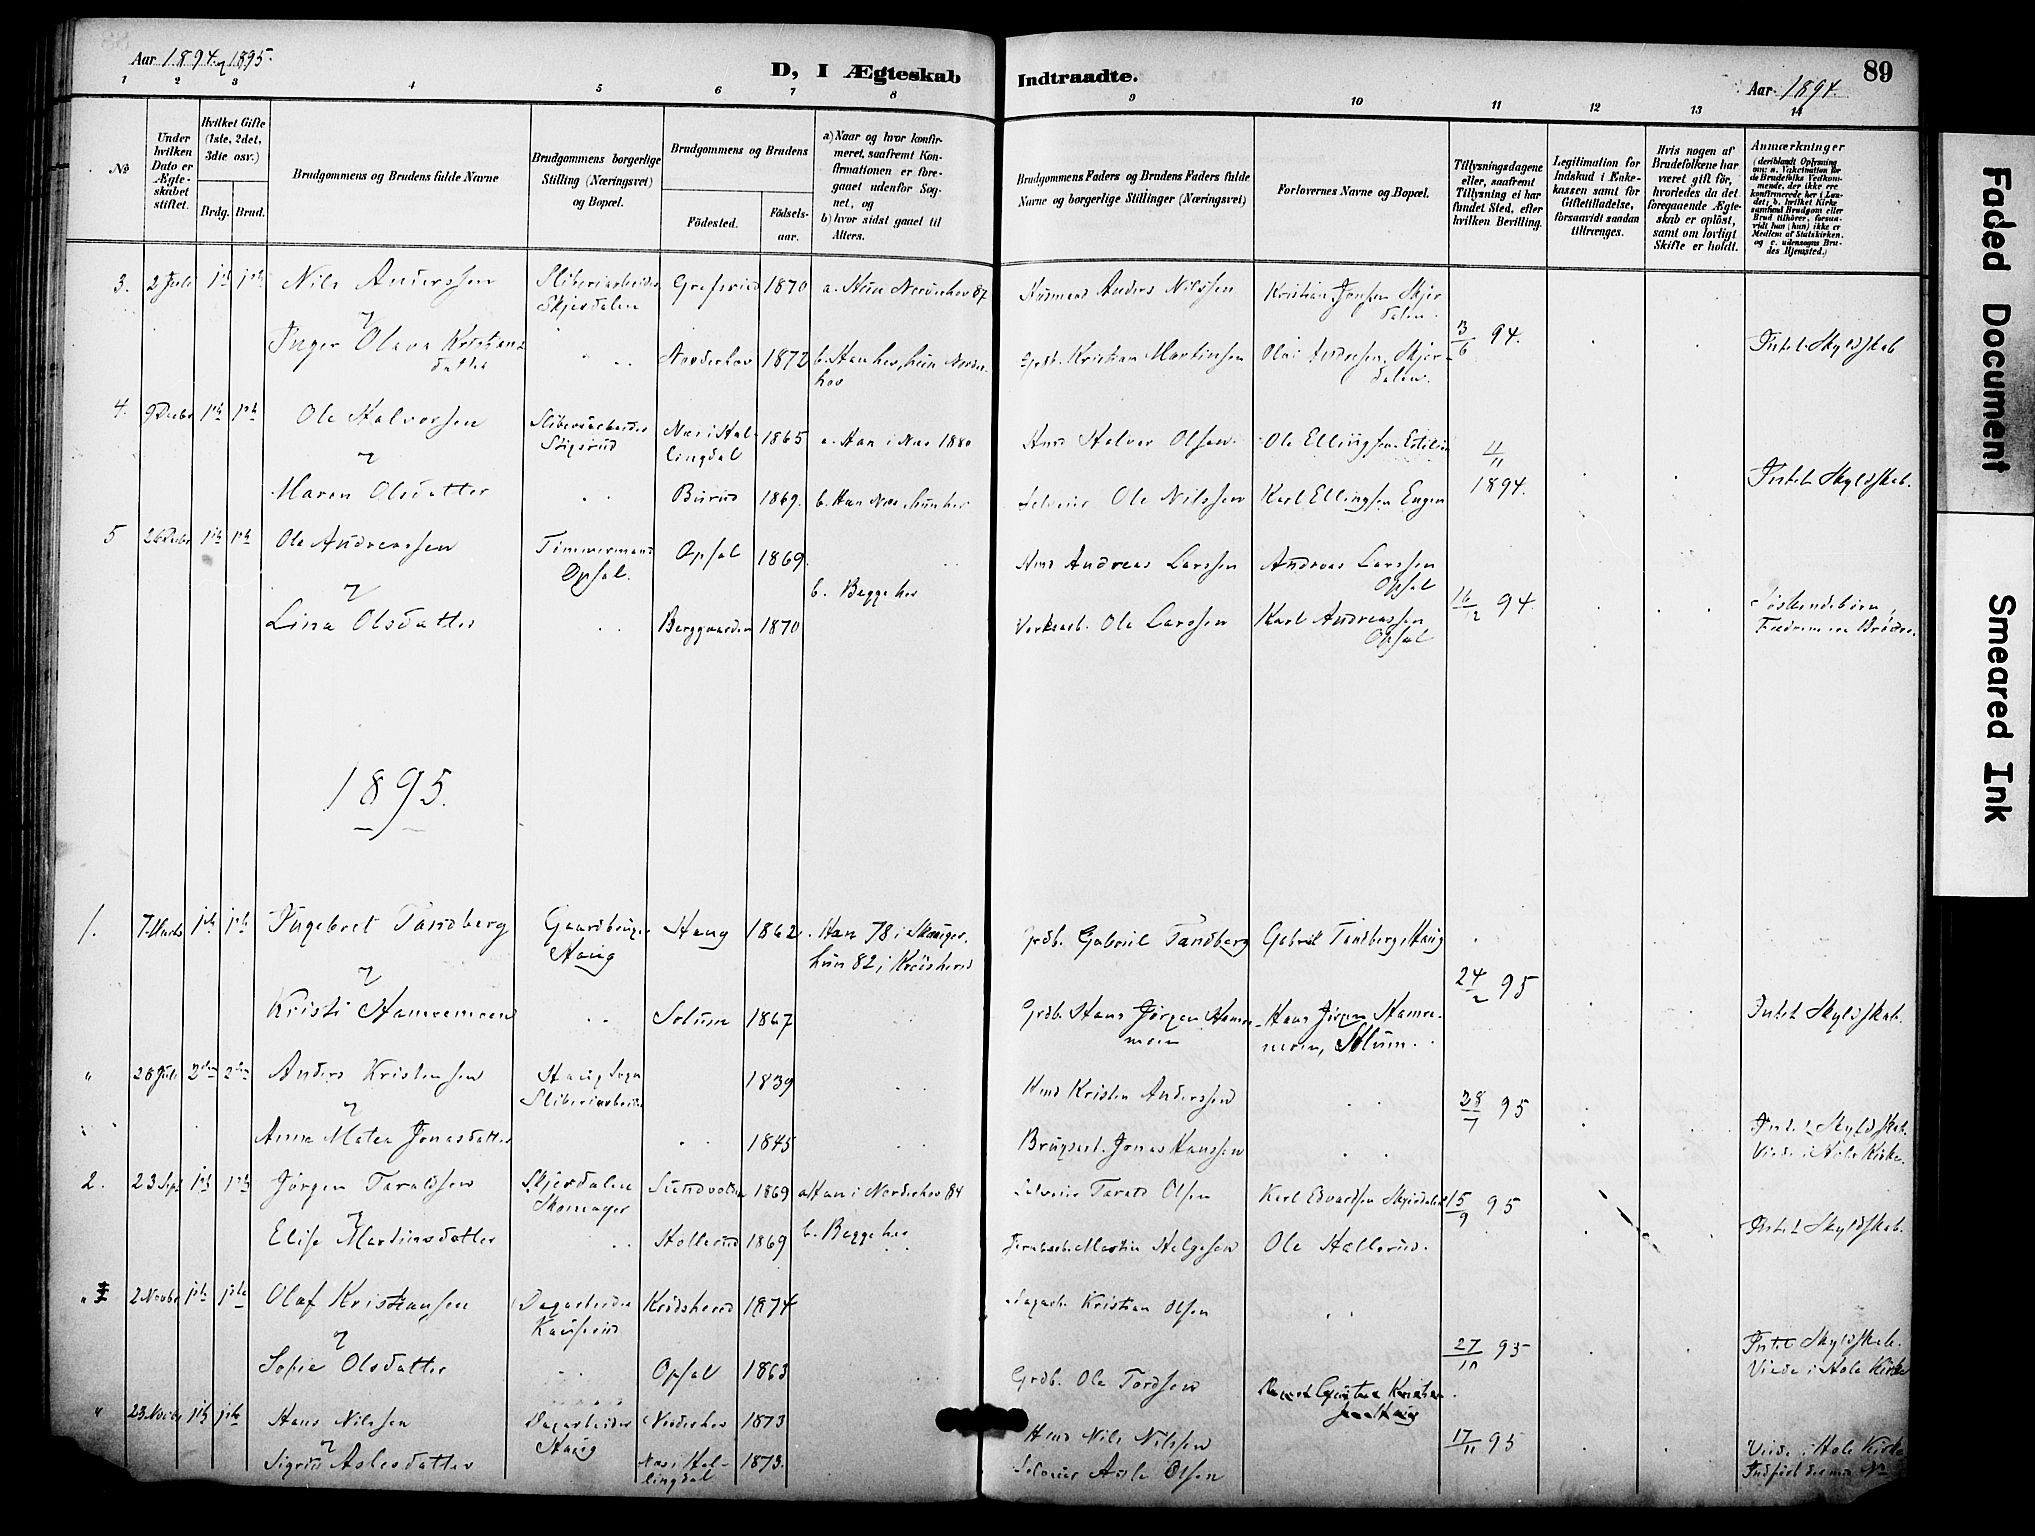 Aar 1894 & 1895.
D, I Ægteskab Indtraadte.
Aar 1894.
89
1 2 3 4 5 6 7 8 9 10 11 12 13 14
No
Under hvilken Dato er Ægteskabet stiftet.
Hvilket Gifte (1ste, 2det, 3die osv.)
Brdg. Brud.
Brudgommens og Brudens fulde Navne
Brudgommens borgerlige Stilling (Næringsvei) og Bopæl.
Brudgommens og Brudens
Fødested. Fødselsaar.
a) Naar og hvor konfirmeret, saafremt Konfirmationen er foregaaet udenfor Sognet, og
b) hvor sidst gaaet til Alters.
Brudgommens Faders og Brudens Faders fulde Navne og borgerlige Stillinger (Næringsvei)
Forlovernes Navne og Bopæl.
Tillysningsdagene eller, saafremt Tillysning ei har fundet Sted, efter hvilken Bevilling.
Legitimation for Indskud i Enkekassen samt for Giftetilladelse, forsaavidt saadan tiltrænges.
Hvis nogen af Brudefolkene har været gift før, hvorledes da det foregaaende Ægteskab er opløst, samt om lovligt Skifte er holdt.
Anmærkninger
(deriblandt Oplysning om: a. Vakcination for de Brudefolks Vedkommende, der ikke ere konfirmerede her i Landet; b. hvilket Kirkesamfund Brudgom eller Brud tilhører, forsaavidt han (hun) ikke er Medlem af Statskirken, og c. udensogns Brudes Hjemsted.)
3. 2 Juli 1ste 1ste Nils Anderssen Sliberiarbeider Skjerdalen 1870 a. Hun Norderhov 87 Husmand Anders Nilssen Kristian Jonsen Skjerdalen.
& 3/6 94. Intet Skyldskab
Inger Olava Kristiansdatter Norderhov 1872 b. Han her, hun Norderhov Grdb. Kristian Martinsen Olai Andresen, Skjerdalen.
4. 9 Decbr 1ste 1ste Ole Halvorsen Sliberiarbeider Nes i Hallingdal 1865 a. Han i Nes 1880 Hmd Halvor Olsen. Ole Ellingsen
& 4/11 1894. Intet Skyldskab.
Maren Olsdatter Burud 1869. b. Han Nes, hun her Selveier Ole Nilssen Karl Ellingsen Engen
5 26 Decbr 1ste 1ste Ole Andreassen Timmermand Opsal. Opsal 1869. Hmd Andreas Larssen Andreas Larssen Opsal
& b. Begge her 16/12 94. Søskendebørn, Fædrene ere Brødre.
Lina Olsdatter Berggaarden 1870 Verksarb. Ole Larssen Karl Andreassen Opsal
1895.
1. 7 Marts 1ste 1ste Ingebret Tandberg Gaardbruger Haug Haug 1862 Han 78 i Skouger, hun 82 i Krødsherred Grdb. Gabriel Tandberg Gabriel Tandberg, Haug
& 24/2 95
Kristi Hamremoen Solum 1867 Grdb. Hans Jørgen Hamremoen Hans Jørgen Hamremoen, Solum. Intet Skyldskab.
" 28 Juli 2den 2den Anders Kristensen Haug Sogn Sliberiarbeider 1839 Hmd Kristen Anderssen
& 28/7 95 Intet Skyldskab. Viede i Hole Kirke.
Anne Matea Jonasdatter 1845 Brugsarb. Jonas Hanssen
2. 23 Sept 1ste 1ste Jørgen Taraldsen Skjerdalen Skomager Sundvolden 1869 a. Han i Norderhov 84 Selveier Tarald Olsen Karl Edvardsen Skjerdalen 15/9 95
&
Elise Martinsdatter Hollerud 1869 b. Begge her Jernbarb. Martin Helgesen Ole Hollerud. Intet Skyldskab.
" 2 Novbr 1ste 1ste Olaf Kristiansen Dagarbeider Krødsherred 1874 Dagarb. Kristian Olsen
& 27/10 95 Intet Skyldskab. Viede i Hole Kirke
Sofie Olsdatter Opsal 1863 Grdb. Ole Tordsen
" 23 Novbr 1ste 1ste Hans Nilssen Dagarbeider Haug Norderhov 1873 Hmd Nils Nilssen
& 17/11 95 Viede i Hole Kirke
Sigrid Aslesdatter Nes i Hallingdal 1873. Selveier Asle Olsen
Faded Document
Smeared Ink